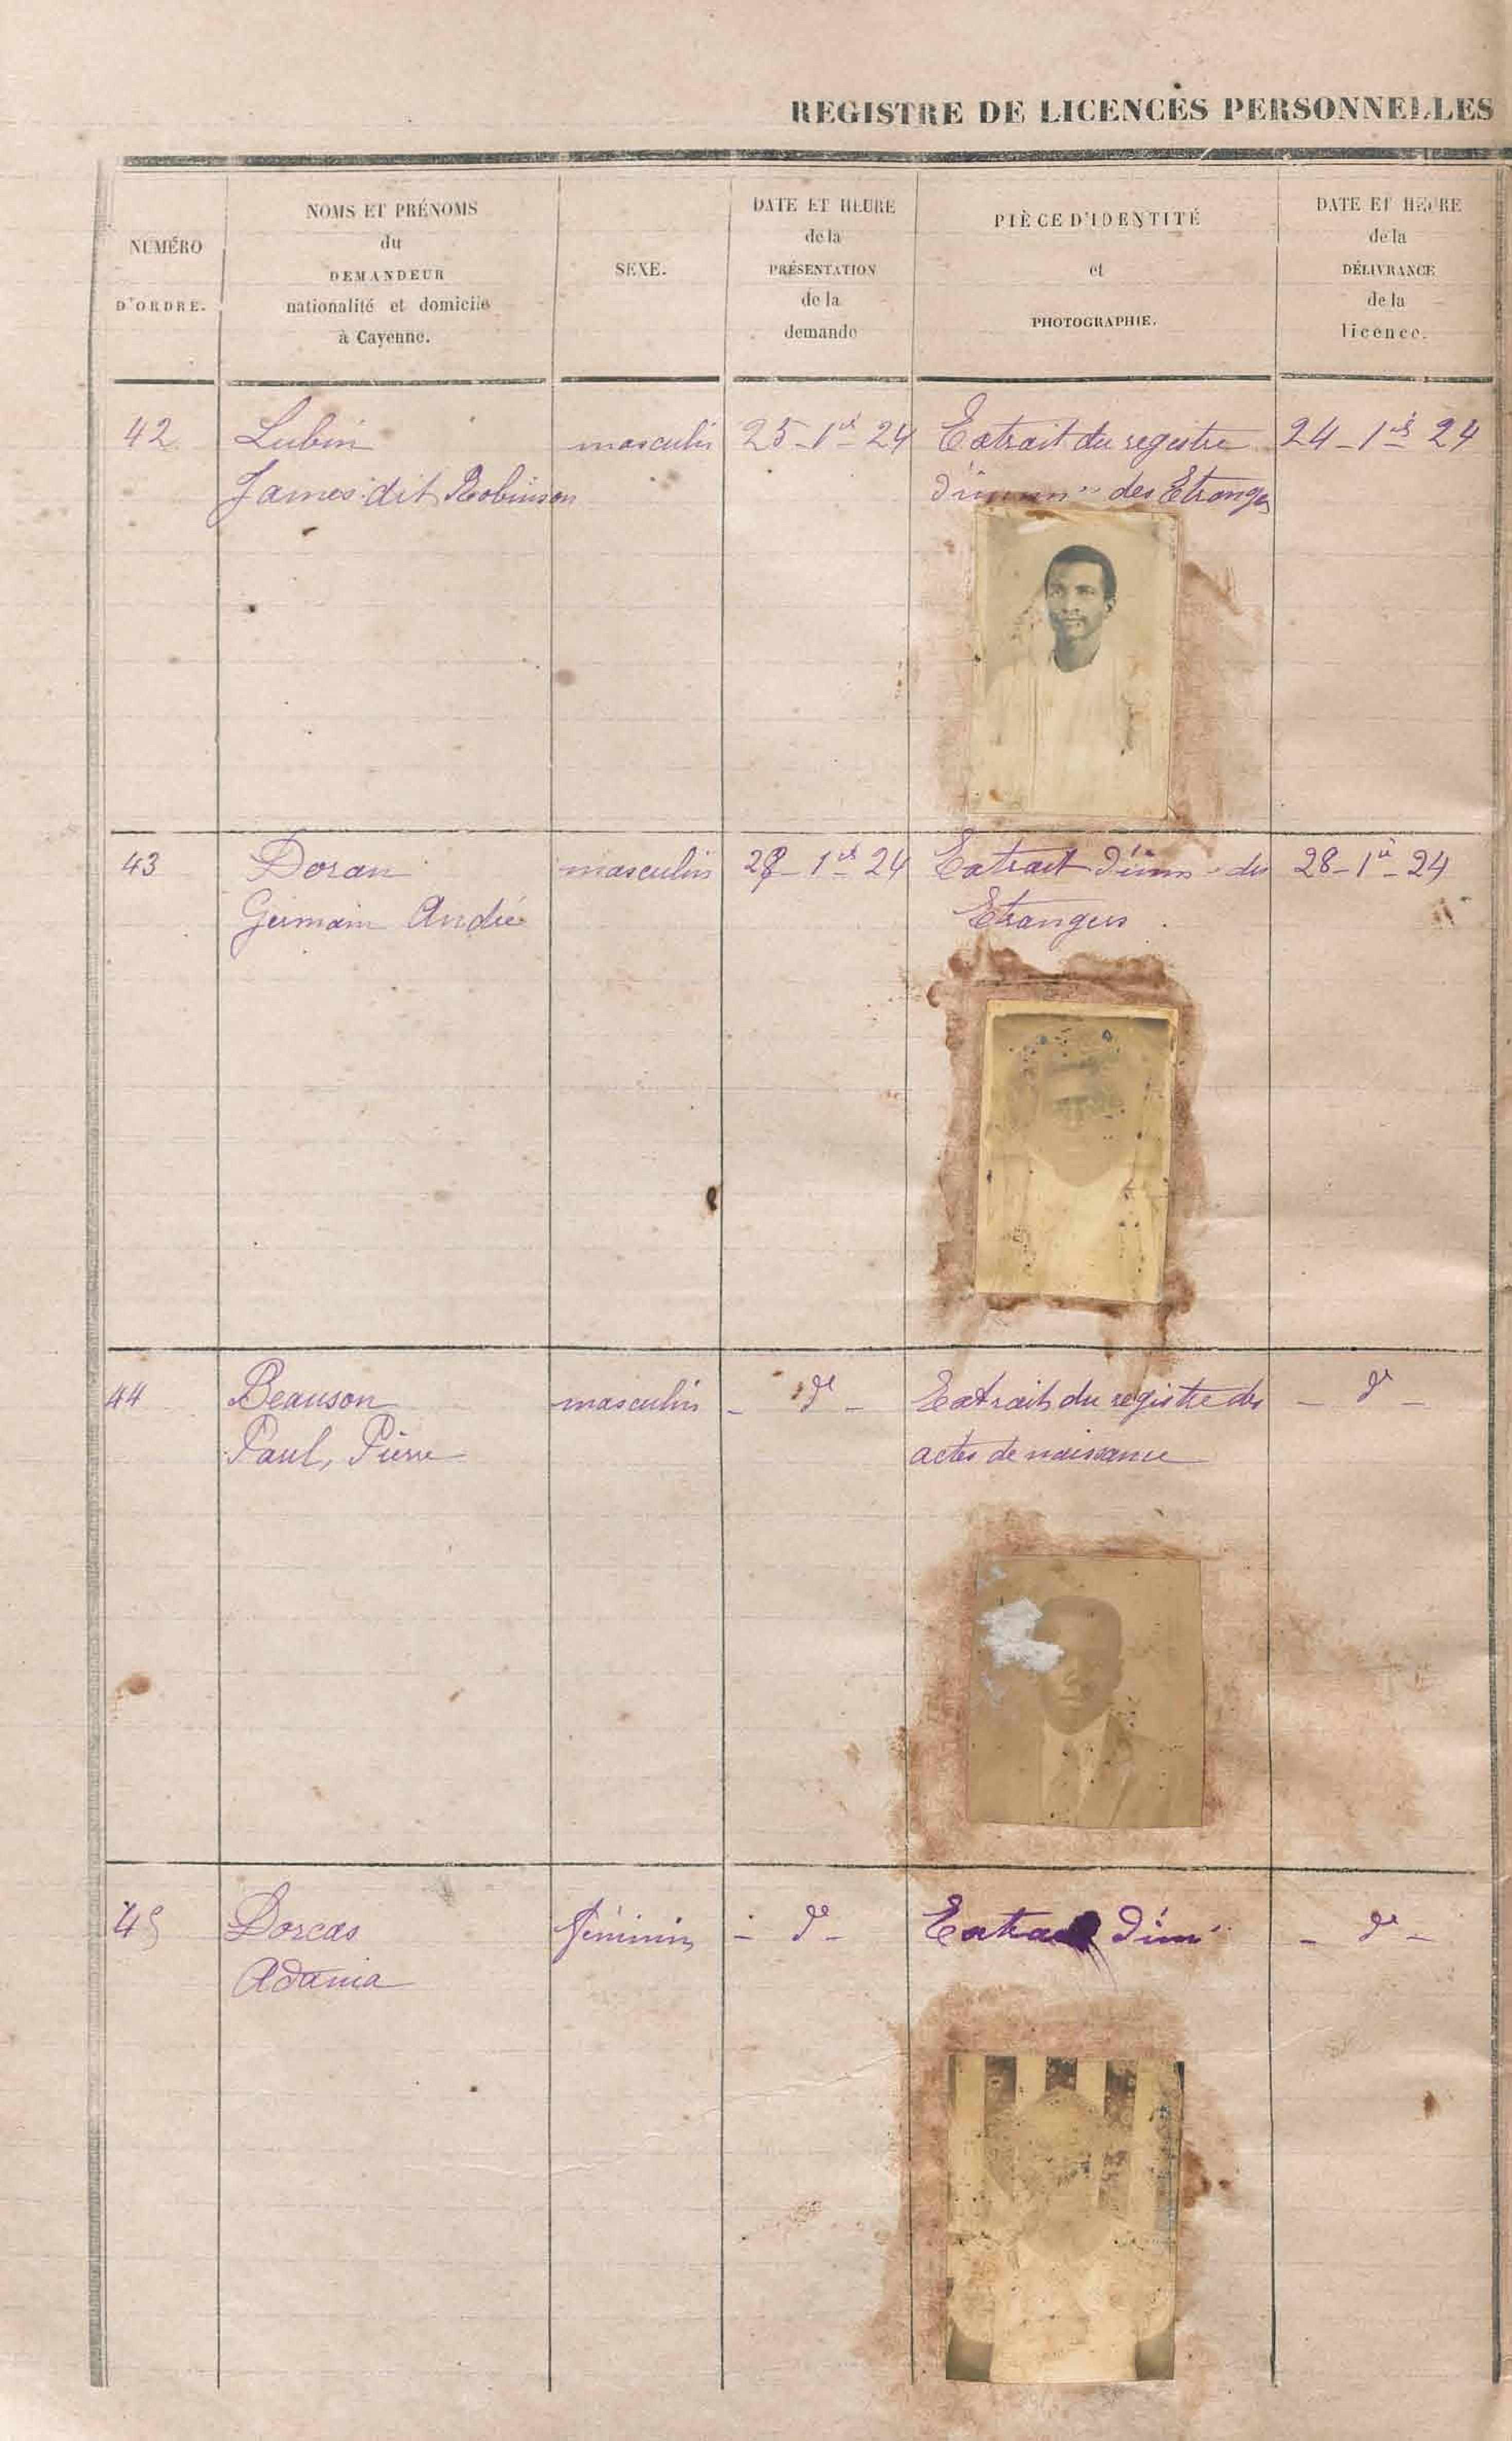 REGISTRE DE LICENCES PERSONNELLES
NUMÉRO
D'ORDRE.
NOMS ET PRÉNOMS
du
DEMANDEUR
nationalité et domicile
à Cayenne.
SEXE.
DATE ET HEURE
de la
PRÉSENTATION
de la
demande
PIÈCE D'IDENTITÉ
et
PHOTOGRAPHIE.
DATE ET HEURE
de la
DÉLIVRANCE
de la
licence.
42
Lubin
James dit Robinson
masculin
25-1er-24
Extrait du registre
des Etrangers
24-1er 24
43
Doran
Germain André
masculin
28-1er-24
Extrait d'imm des
Etrangers
28-1er-24
44
Beauson
Paul, Pierre
masculin
- do -
Extrait du registre des
actes de naissance
- do -
45
Dorcas
Adania
féminin
- do -
Extrait d'im
- do -